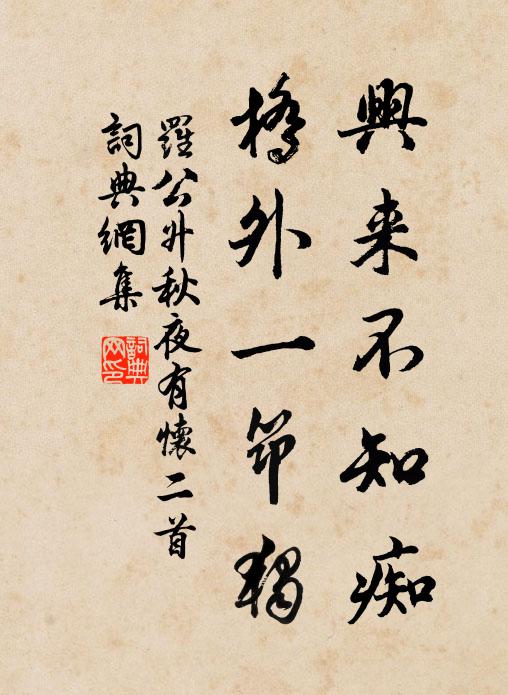 興来不知痴
橋外一筇獨
羅公升秋夜有懷二首
詞典網集
詞典网印